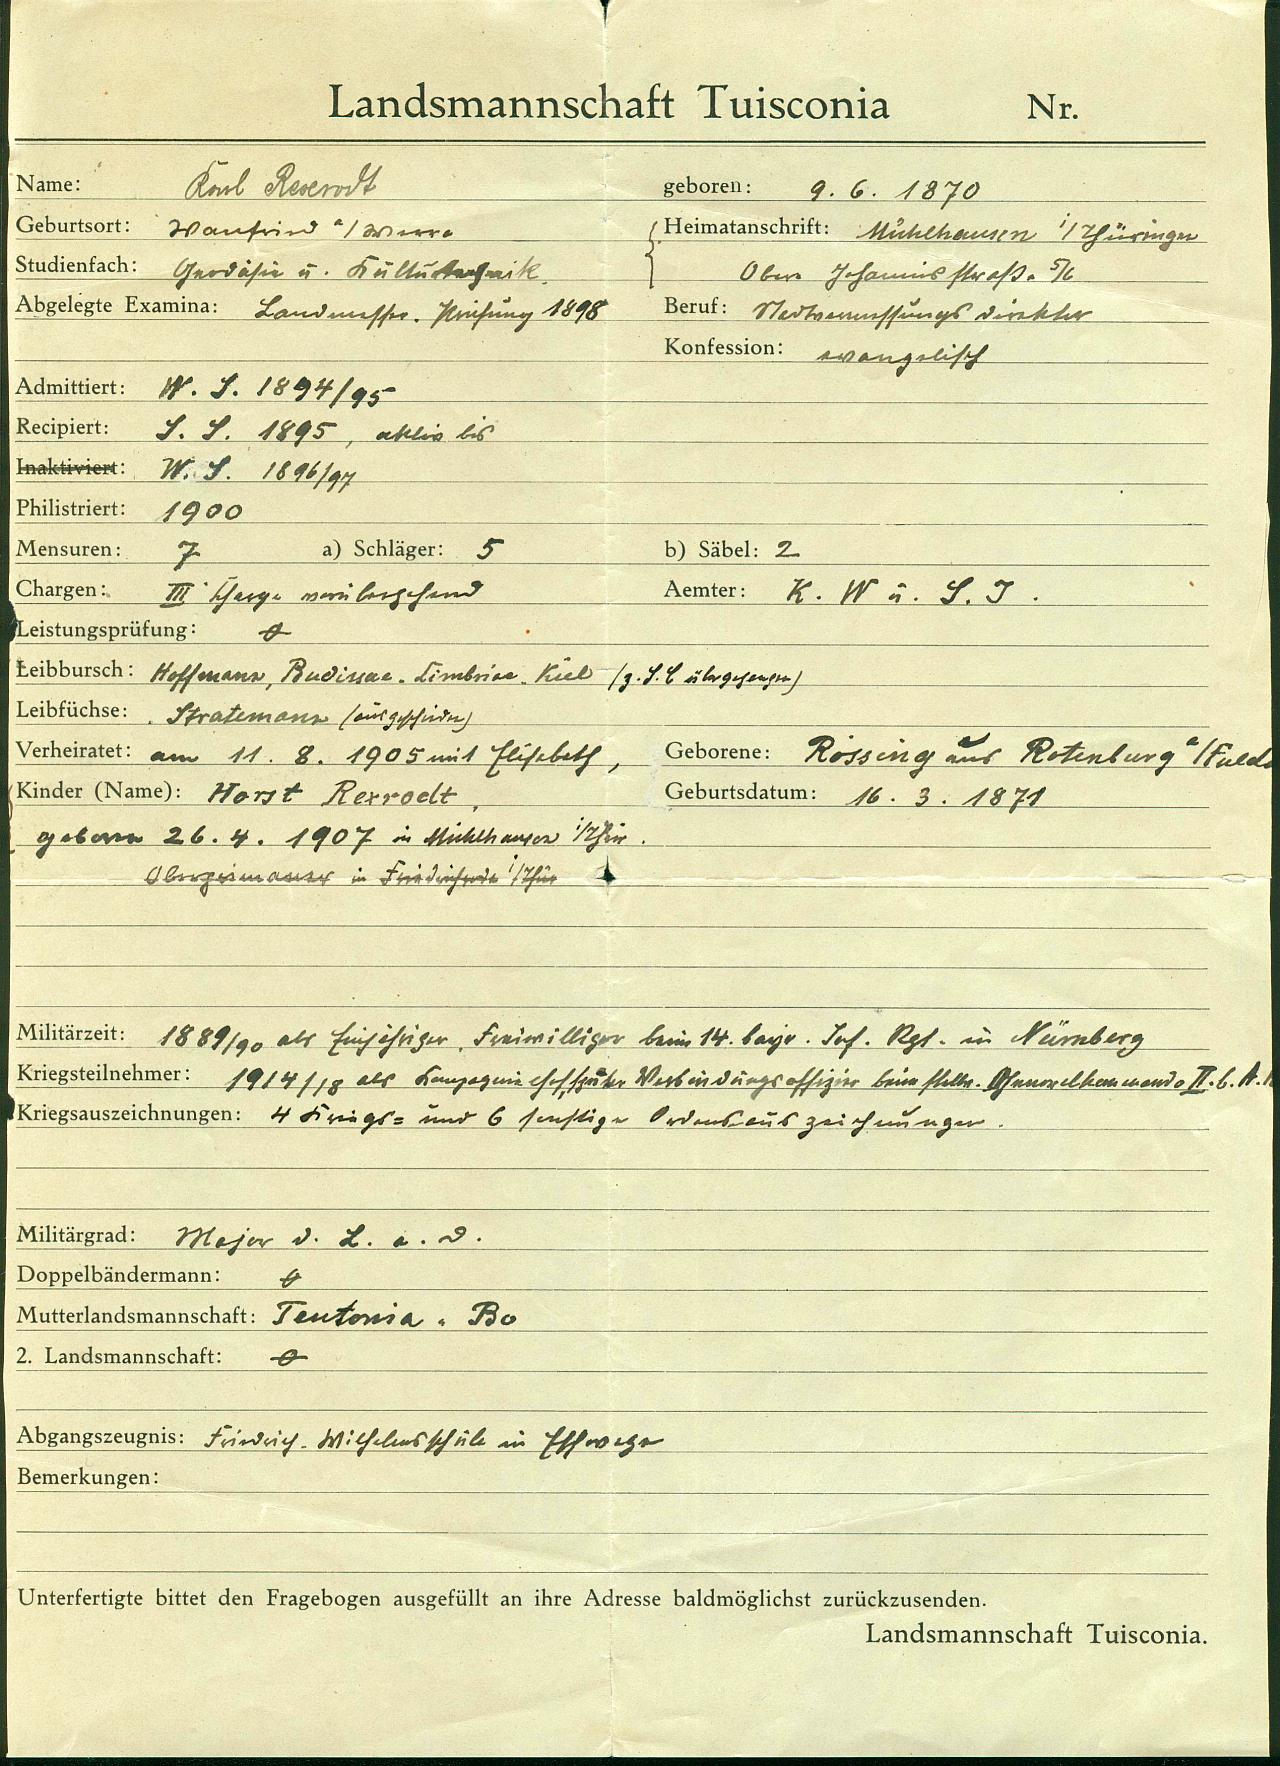 Landsmannschaft Tuisconia Nr.
Name: Karl Rexrodt geboren: 9. 6. 1870
Geburtsort: Wanfried a/Werra Heimatanschrift: Mühlhausen i/Thüringen
Studienfach: Geodäsie u. Kulturtechnik. Obere Johannisstraße 5/6
Abgelegte Examina: Landmesser-Prüfung 1898 Beruf: Stadtvermessungsdirektor
Konfession: evangelisch
Admittiert: W. S. 1894/95
Recipiert: S. S. 1895, aktiv bis
Inaktiviert: W. S. 1896/97
Philistriert: 1900
Mensuren: 7 a) Schläger: 5 b) Säbel: 2
Chargen: III Charge vorübergehend Aemter: K. W u. S. J.
Leistungsprüfung:
Leibbursch: Hoffmann, Budissae-Cimbriae-Kiel (z. S.C übergegangen)
Leibfüchse: Stratemann (ausgeschieden)
Verheiratet: am 11. 8. 1905 mit Elisabeth, Geborene: Rössing aus Rotenburg a/Fulda
Kinder (Name): Horst Rexrodt, Geburtsdatum: 16. 3. 1871
geboren 26. 4. 1907 in Mühlhausen i/Thür.
in i/Thür
Militärzeit: 1889/90 als Einjähriger-Freiwilliger beim 14. bayr. Inf. Rgt. in Nürnberg
Kriegsteilnehmer: 1914/18 als Kompagniechef, später Verbindungsoffizier beim stellv. Generalkommando II. b. A.
Kriegsauszeichnungen: 4 Kriegs= und 6 sonstige Ordensauszeichnungen.
Militärgrad: Major d. L. a. D.
Doppelbändermann:
Mutterlandsmannschaft: Teutonia-Bo
2. Landsmannschaft:
Abgangszeugnis: Friedrich-Wilhelmsschule in Eschwege
Bemerkungen:
Unterfertigte bittet den Fragebogen ausgefüllt an ihre Adresse baldmöglichst zurückzusenden.
Landsmannschaft Tuisconia.